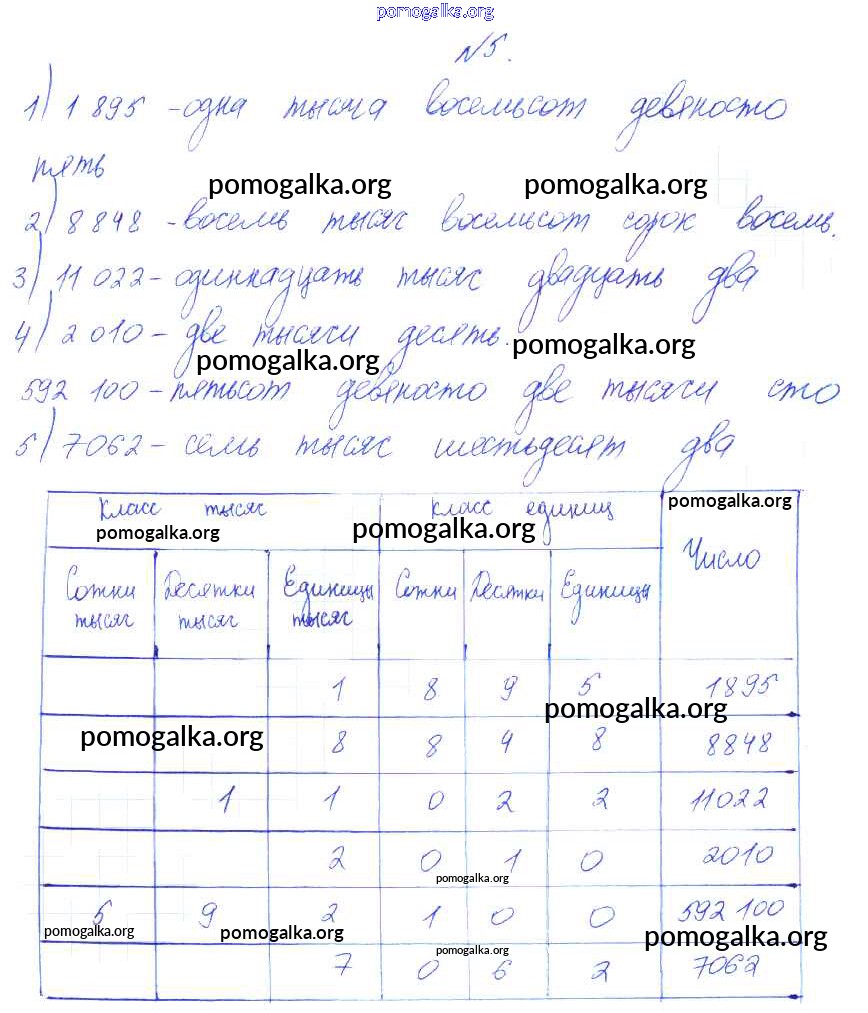 pomogalka.org
№5.
1) 1 895 - одна тысяча восемьсот девяносто
пять
pomogalka.org pomogalka.org
2) 8 848 - восемь тысяч восемьсот сорок восемь.
3) 11 022 - одиннадцать тысяч двадцать два
4) 2 010 - две тысячи десять.
pomogalka.org pomogalka.org
592 100 - пятьсот девяносто две тысячи сто
5) 7062 - семь тысяч шестьдесят два
класс тысяч класс единиц pomogalka.org
pomogalka.org pomogalka.org
Число
Сотни тысяч Десятки тысяч Единицы тысяч Сотни Десятки Единицы
1 8 9 5 1895
pomogalka.org
pomogalka.org 8 8 4 8 8848
1 1 0 2 2 11022
2 0 1 0 2010
pomogalka.org
5 9 2 1 0 0 592 100
pomogalka.org pomogalka.org pomogalka.org pomogalka.org
7 0 6 2 7062